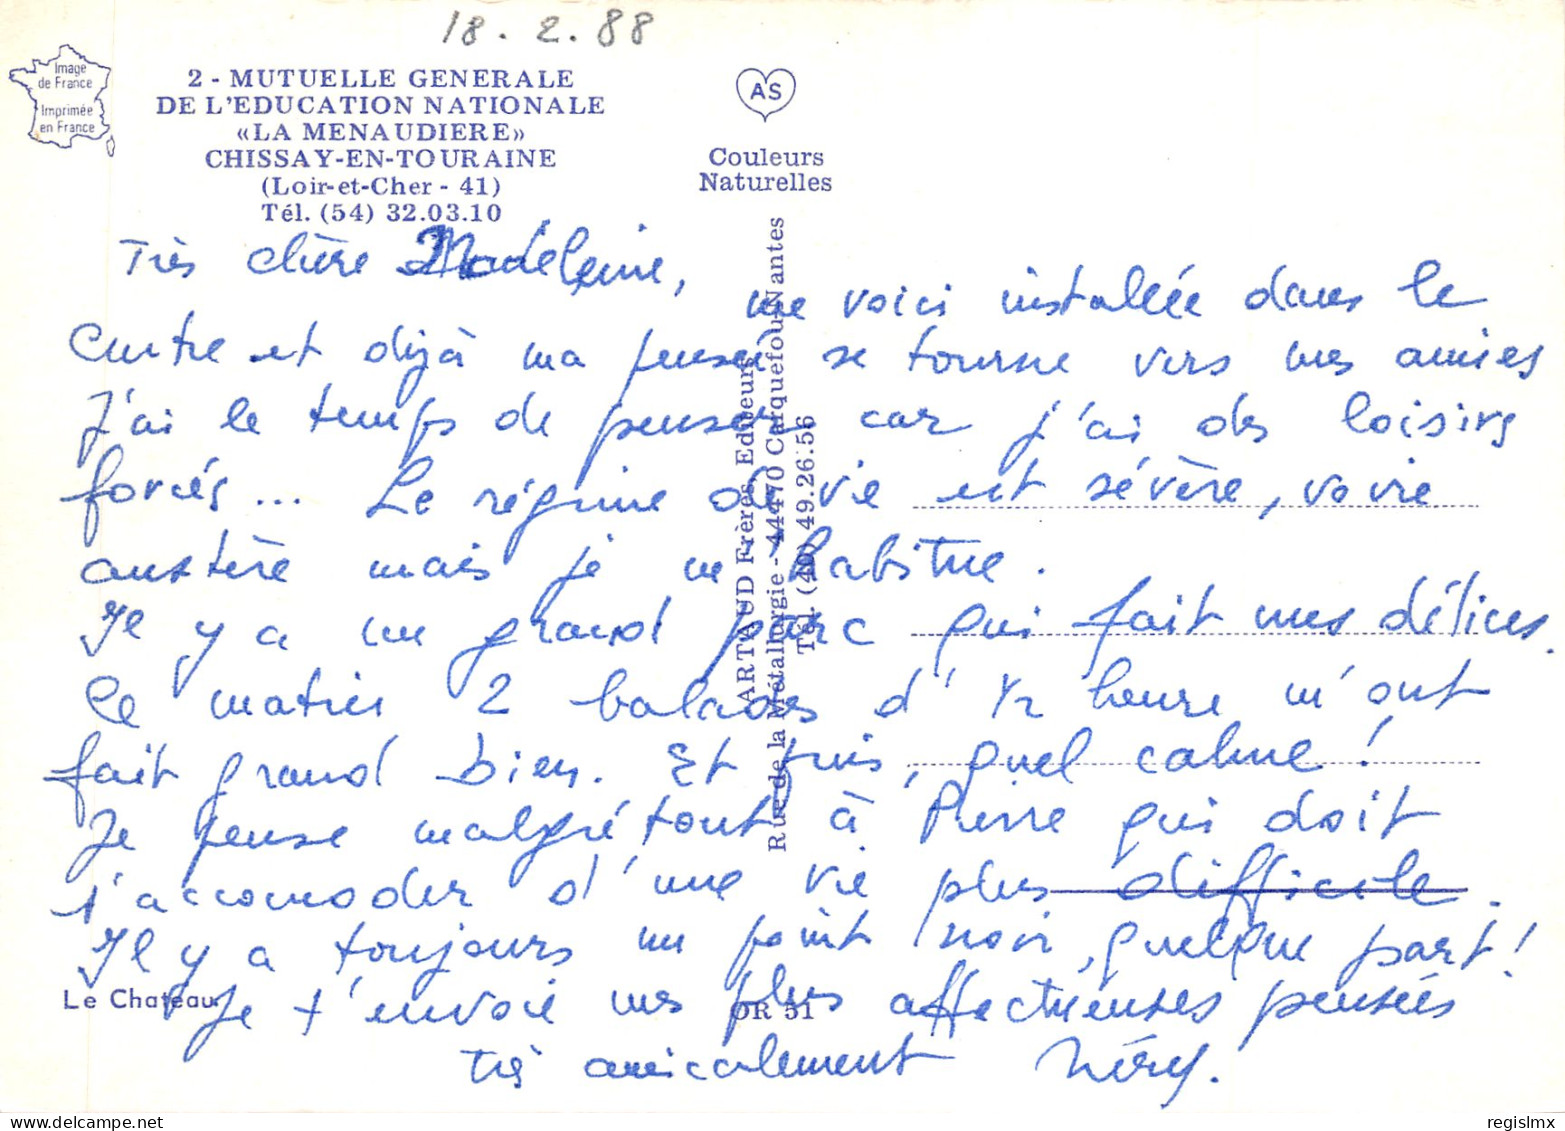 18.2.88
Image
de France
Imprimée
en France
2 - MUTUELLE GENERALE
DE L'EDUCATION NATIONALE
«LA MENAUDIERE»
CHISSAY-EN-TOURAINE
(Loir-et-Cher - 41)
Tél. (54) 32.03.10
AS
Couleurs
Naturelles
ARTAUD Frères, Editeurs
Rue de la Métallurgie - 44470 Carquefou-Nantes
Tél. (40) 49.26.56
Très chère Madeleine,
me voici installée dans le
centre et déjà ma pensée se tourne vers mes amies
J'ai le temps de penser car j'ai des loisirs
forcés... Le régime de vie est sévère, voire
austère mais je m'habitue.
Il y a un grand parc qui fait mes délices.
Ce matin 2 balades d'1/2 heure m'ont
fait grand bien. Et puis, quel calme !
Je pense malgré tout à Pierre qui doit
s'accomoder d'une vie plus difficile.
Il y a toujours un point noir, quelque part !
Le Chateau
Je t'envoie mes plus affectueuses pensées
OR 51
Très amicalement
regislmx